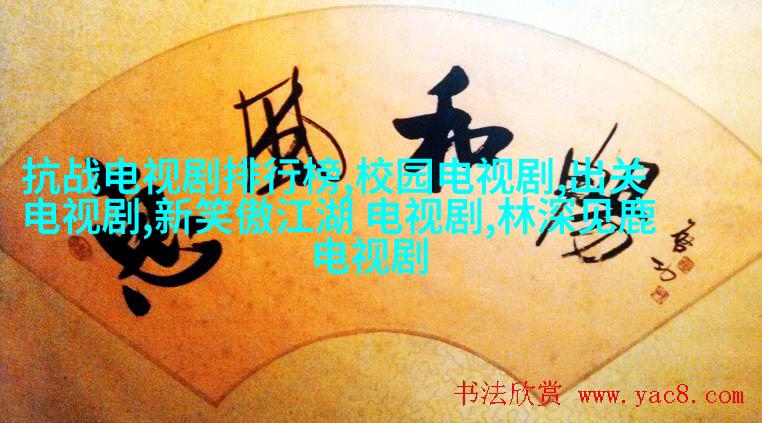 惠風和暢
启功
抗战电视剧排行榜,校园电视剧,出关
电视剧,新笑傲江湖 电视剧,林深见鹿
电视剧
书法欣赏 www.yac8.com